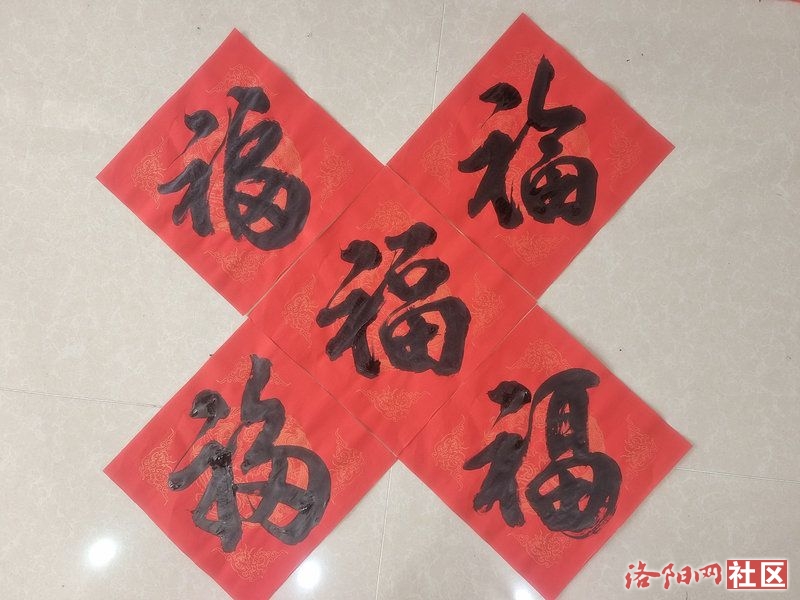 福
福
福
福
福
洛阳网社区